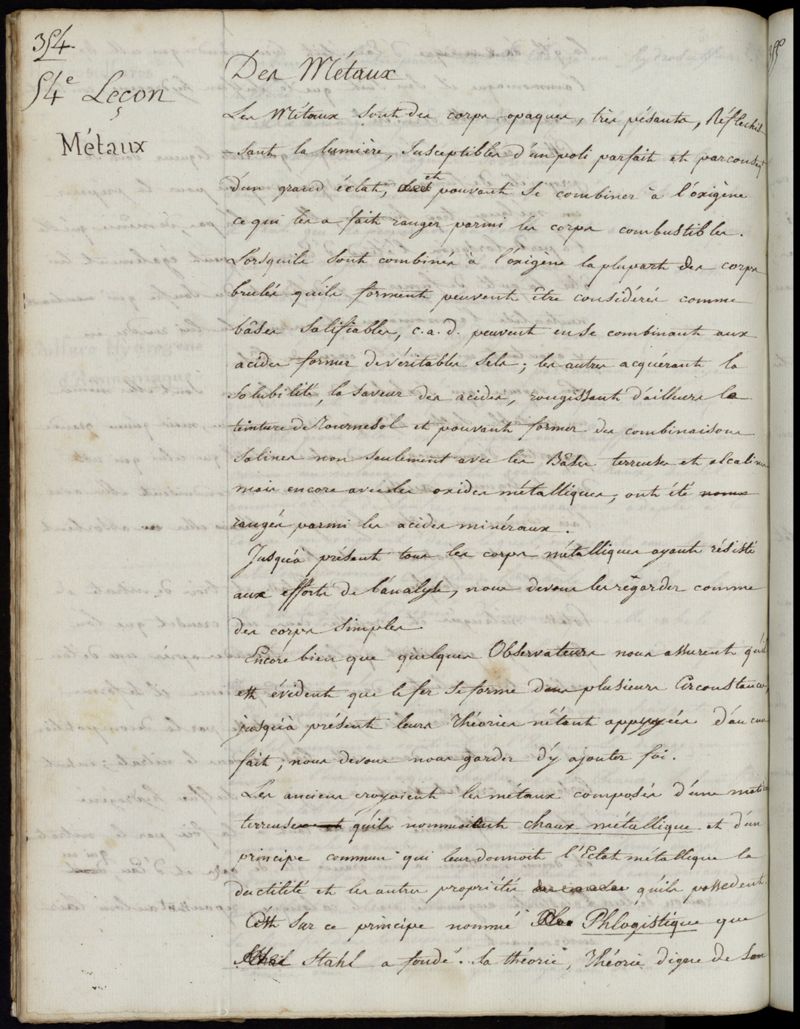 354.
54e Leçon
Métaux
Des Métaux
Les Métaux sont des corps opaques, très pésants, Réflechis
-sant la lumière, susceptibles d'un poli parfait et par conseqt
d'un grand éclat, et pouvant se combiner à l'oxigène
ce qui les a fait ranger parmi les corps combustibles.
Lorsquils sont combinés à l'oxigène la plupart des corps
brulés qu'ils forment peuvent être considérés comme
bâses salifiables, c.a.d. peuvent en se combinant aux
acides former de véritables sels; les autres acquérant la
solubilité, la saveur des acides, rougissant d'ailleurs la
teinture de Tournesol et pouvant former des combinaisons
salines non seulement avec les Bâses terreuses et alcalines
mais encore avec les oxides métalliques, ont été nous
rangés parmi les acides minéraux.
Jusqu'à présent tous les corps métalliques ayant résisté
aux efforts de l'analyse, nous devons les régarder comme
des corps simples.
Encore bien que quelques Observateurs nous assurent qu'il
est évident que le fer se forme dans plusieurs Circonstances,
jusqu'à présent leurs Théories n'étant appuyées d'aucun
fait, nous devons nous garder d'y ajouter foi.
Les anciens croyoient les métaux composés d'une matière
terreuse et qu'ils nommoient chaux métallique et d'un
principe commun qui leur donnoit l'Eclat métallique la
ductilité et les autres propriétés qu'ils possedent.
C'est sur ce principe nommé Phlogistique que
Stahl a fondé sa théorie, Théorie digne de son